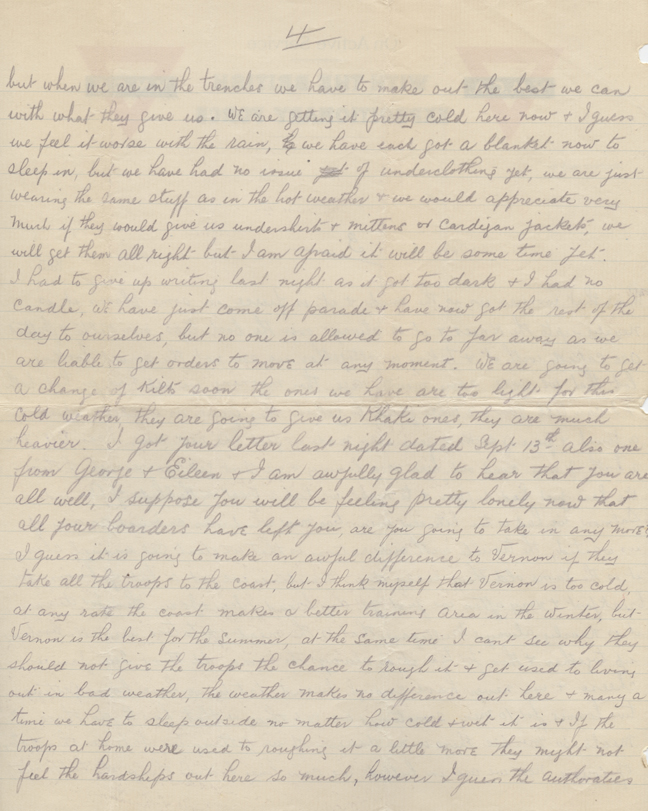 4
but when we are in the trenches we have to make out the best we can
with what they give us. WE are getting it pretty cold here now + I guess
we feel it worse with the rain, we have each got a blanket now to
sleep in, but we have had no issue of underclothing yet, we are just
wearing the same stuff as in the hot weather + we would appreciate very
much if they would give us undershirts + mittens or cardigan jackets, we
will get them all right but I am afraid it will be some time yet.
I had to give up writing last night as it got too dark + I had no
candle, we have just come off parade + have now got the rest of the
day to ourselves, but no one is allowed to go to far away as we
are liable to get orders to move at any moment. WE are going to get
a change of Kilts soon the ones we have are too light for this
cold weather, they are going to give us Khaki ones, they are much
heavier. I got your letter last night dated Sept 13th also one
from George + Eileen + I am awfully glad to hear that you are
all well, I suppose you will be feeling pretty lonely now that
all your boarders have left you, are you going to take in any more?
I guess it is going to make an awful difference to Vernon if they
take all the troops to the coast, but I think myself that Vernon is too cold,
at any rate the coast makes a better training area in the winter, but
Vernon is the best for the summer, at the same time I cant see why they
should not give the troops the chance to rough it + get used to living
out in bad weather, the weather makes no difference out here + many a
time we have to sleep outside no matter how cold + wet it is + If the
troops at home were used to roughing it a little more they might not
feel the hardships out here so much, however I guess the authoraties